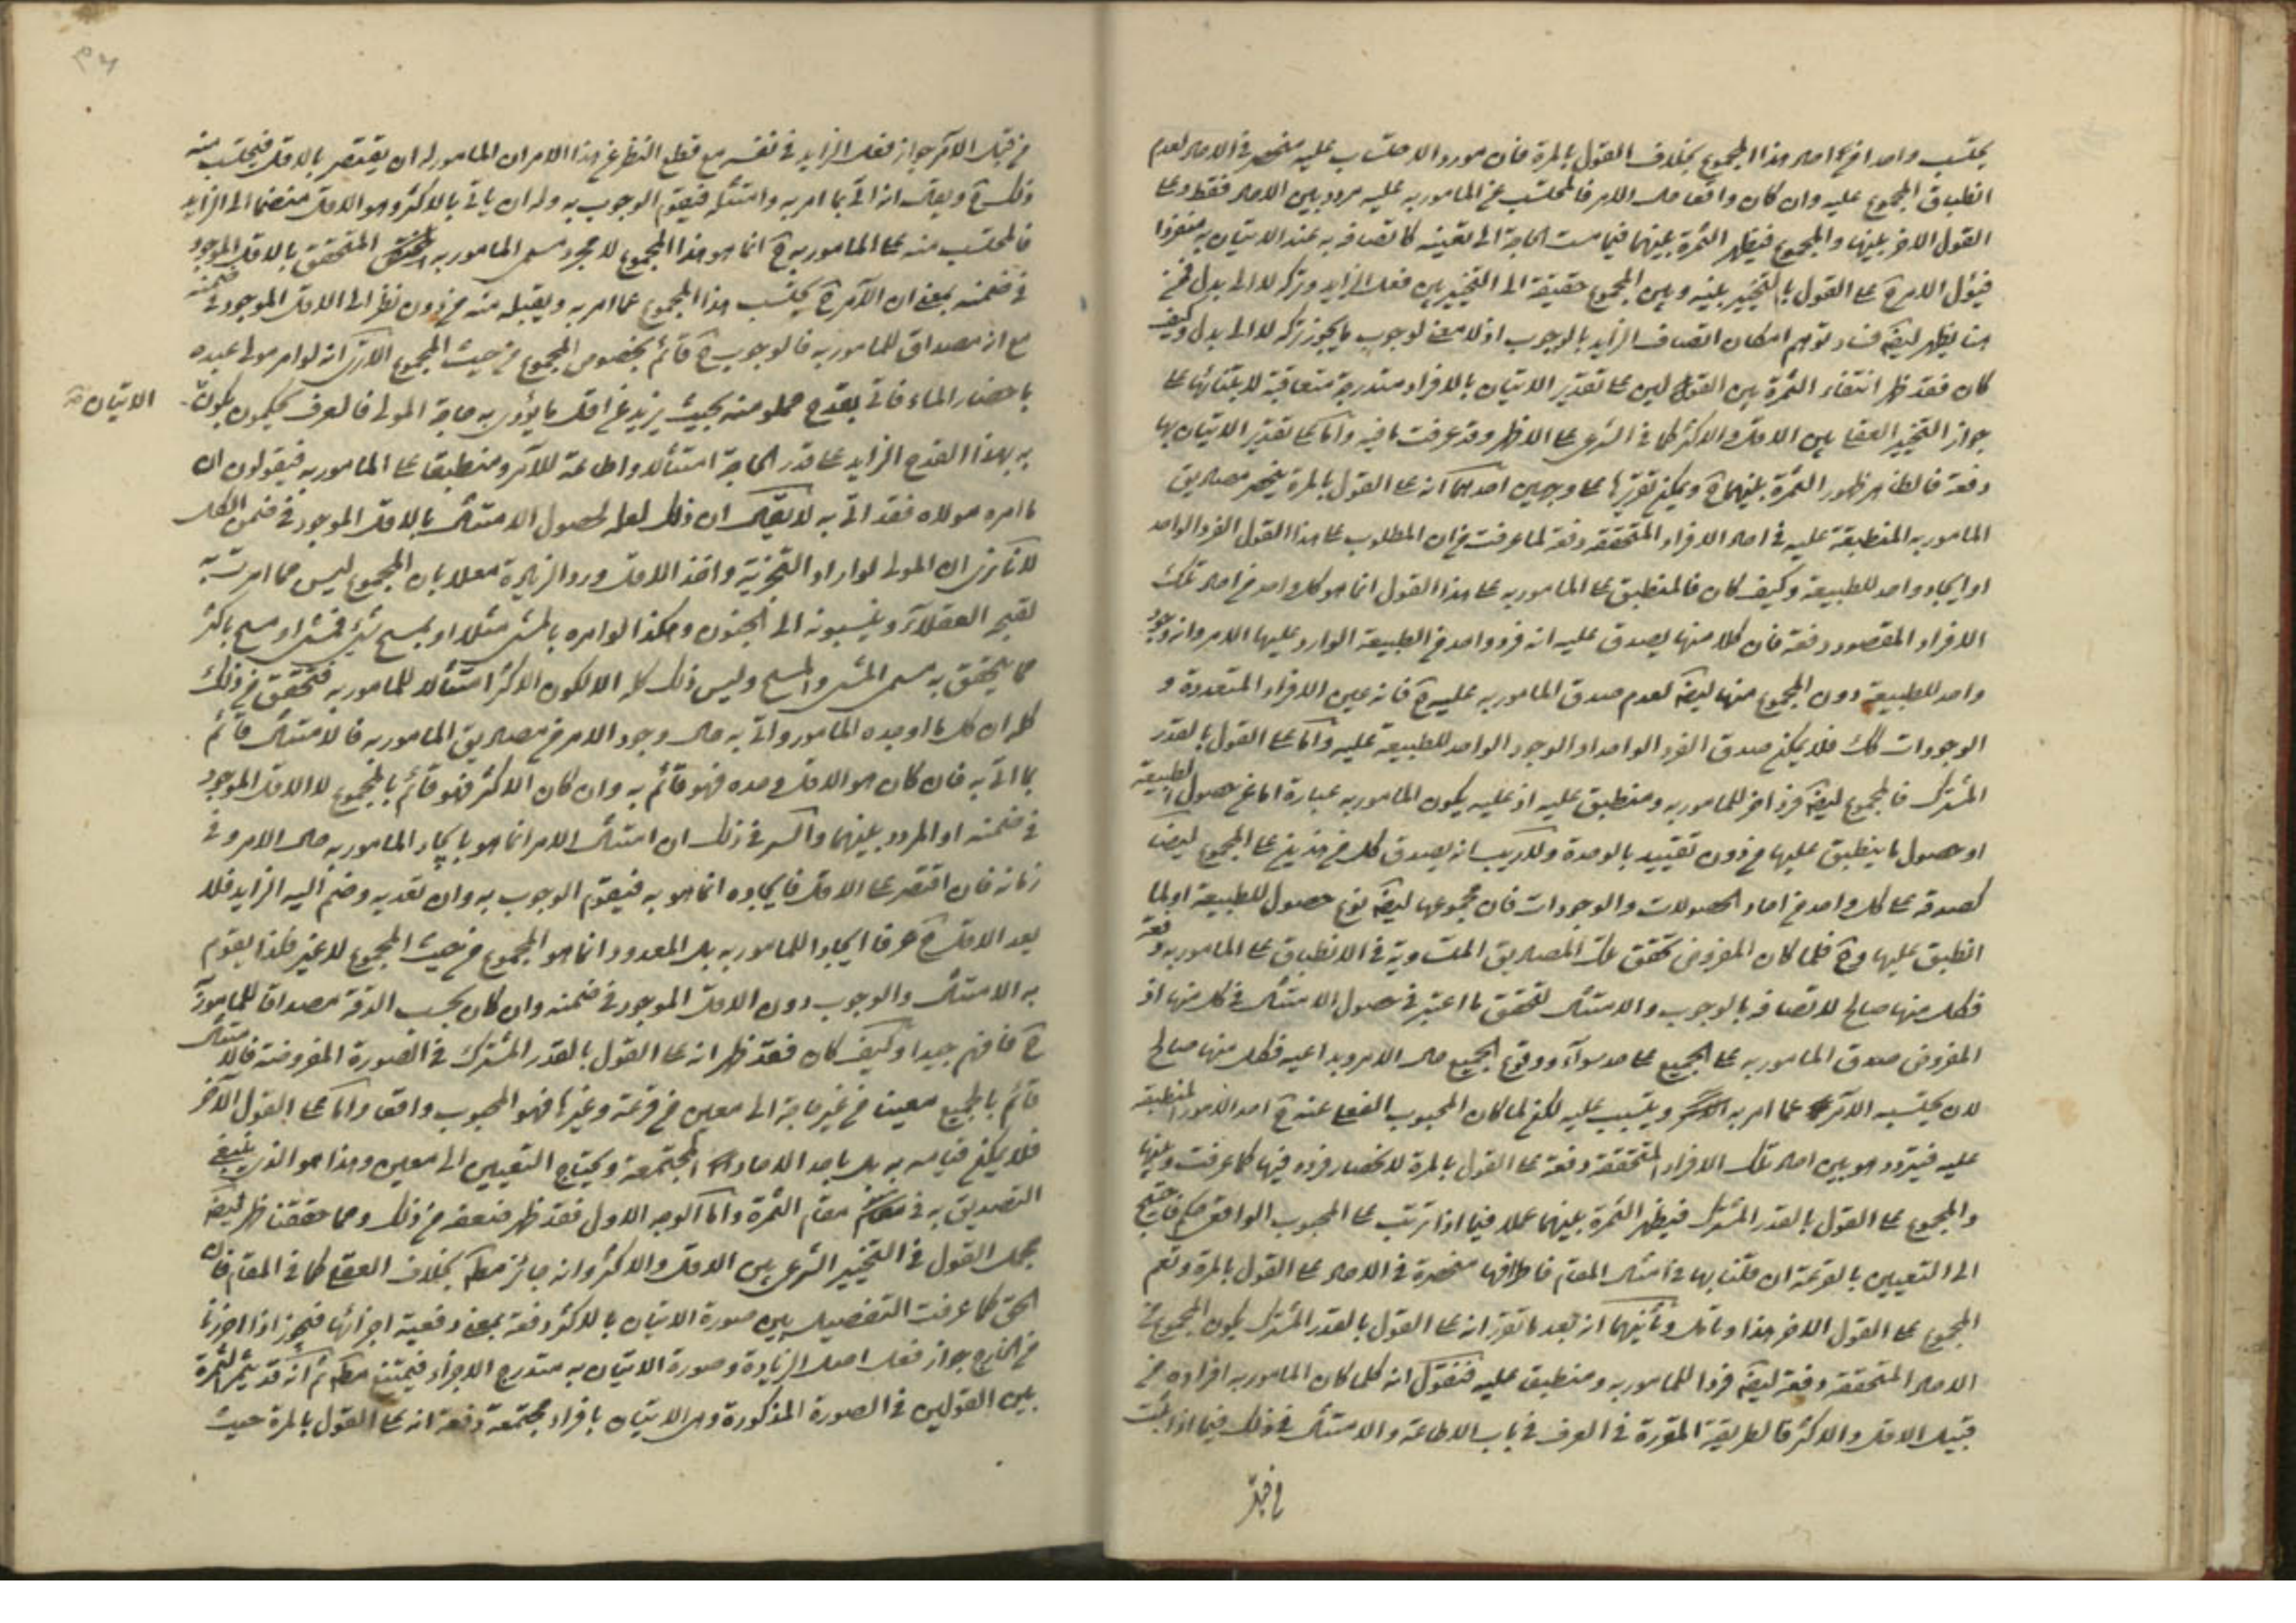 يحتسب واحدا من احاد هذا المجموع بخلاف القول بالمرة فان مورد الاحتساب عليه منحصر في الاحاد لعدم
انطباق المجموع عليه وان كان واقعا حال الامر فالمحتسب عن المامور به عليه مردد بين الاحاد فقط وعلى
القول الاخر بينها والمجموع فيظهر الثمرة بينهما فيما مست الحاجة الى تعيينه كاتصافه به عند الاتيان به منفردا
فيؤل الامر ح على القول بالتخيير بينه وبين المجموع حقيقة الى التخيير بين فعل الزايد وتركه لا الى بدل فمن
هنا يظهر ايضا فساد توهم امكان اتصاف الزايد بالوجوب اذ لا معنى لوجوب ما يجوز تركه لا الى بدل وكيف
كان فقد ظهر انتفاء الثمرة بين القولين على تقدير الاتيان بالافراد متدرجة متعاقبة لابتنائها على
جواز التخيير العقلي بين الاقل والاكثر كما في الشرعي على الاظهر وقد عرفت ما فيه واما على تقدير الاتيان بها
دفعة فالظاهر ظهور الثمرة بينهما ح ويمكن تقريرها على وجهين احدهما انه على القول بالمرة ينحصر مصاديق
المامور به المنطبقة عليه في احاد الافراد المتحققة دفعة لما عرفت من ان المطلوب على هذا القول الفرد الواحد
او ايجاد واحد للطبيعة وكيف كان فالمنطبق على المامور به على هذا القول انما هو كل واحد من احاد تلك
الافراد المقصود دفعة فان كلا منها يصدق عليه انه فرد واحد من الطبيعة الوارد عليها الامر وانه وجود
واحد للطبيعة دون المجموع منها ايضا لعدم صدق المامور به عليه ح فانه عين الافراد المتعددة و
الوجودات كك فلا يمكن صدق الفرد الواحد او الوجود الواحد للطبيعة عليه واما على القول بالقدر
المشترك فالمجموع ايضا فرد اخر للمامور به ومنطبق عليه اذ عليه يكون المامور به عبارة اما عن حصول الطبيعة
او حصول ما ينطبق عليها من دون تقييد بالوحدة ولا ريب انه يصدق كل من هذين على المجموع ايضا
كصدقه على كل واحد من احاد الحصولات والوجودات فان مجموعها ايضا نوع حصول للطبيعة او لما
انطبق عليها وح فلما كان المفروض تحقق تلك المصاديق المتساوية في الانطباق على المامور به دفعة
فكل منها صالح لاتصافه بالوجوب والامتثال لتحقق ما اعتبر في حصول الامتثال في كل منها اذ
المفروض صدق المامور به على الجميع على حد سواء ووقوع الجميع حال الامر وبداعيه فكل منها صالح
لان يحتسبه الآمر عما امر به ويثيب عليه لكن لما كان المحبوب الفعلي عنده ح احد الامور المنطبقة
عليه فيتردد هو بين احاد تلك الافراد المتحققة دفعة على القول بالمرة لانحصار فرده فيها كما عرفت وبينها
والمجموع على القول بالقدر المشترك فيظهر الثمرة بينهما عملا فيما اذا ترتب على المحبوب الواقعي حكم فاحتيج
الى التعيين بالقرعة ان قلنا بها في امثال المقام فاطرافها منحصرة في الاحاد على القول بالمرة وتعم
المجموع على القول الاخر هذا وتامل وثانيهما انه بعد ما تقرر انه على القول بالقدر المشترك يكون المجموع من
الاحاد المتحققة دفعة ايضا فردا للمامور به ومنطبق عليه فنقول انه كلما كان المامور به افراده من
قبيل الاقل والاكثر فالطريقة المقررة في العرف في باب الاطاعة والامتثال في ذلك فيما اذا ثبت
من قبل
من قبل الآمر جواز فعل الزايد في نفسه مع قطع النظر عن هذا الامر ان المامور له ان يقتصر بالاقل فيحتسب منه
ذلك ح ويقال انه اتى بما امر به وامتثله فيقوم الوجوب به وله ان ياتي بالاكثر وهو الاقل منضما الى الزايد
فالمحتسب منه على المامور به ح انما هو هذا المجموع لا مجرد مسمى المامور به المتحقق بالاقل الموجود
في ضمنه بمعنى ان الآمر ح يحتسب هذا المجموع عما امر به ويقبله منه من دون نظر الى الاقل الموجود في ضمنه
مع انه مصداق للمامور به فالوجوب ح قائم بخصوص المجموع من حيث المجموع الا ترى انه لو امر مولى عبده
باحضار الماء فاتى بقدح مملو منه بحيث يزيد عن اقل ما يؤدى به حاجة المولى فالعرف يحكمون بكون
الاتيان
به بهذا القدح الزايد على قدر الحاجة امتثالا واطاعة للآمر ومنطبقا على المامور به فيقولون ان
ما امره مولاه فقد اتى به لا يقال ان ذلك لعله لحصول الامتثال بالاقل الموجود في ضمن الكل
لانا نرى ان المولى لو اراد التجزية واخذ الاقل ورد الزيادة معللا بان المجموع ليس مما امرت به
لقبحه العقلاء وينسبونه الى الجنون وهكذا لو امره بالمشي مثلا او بمسح شيء فمشى او مسح باكثر
مما يتحقق به مسمى المشي والمسح وليس ذلك كله الا لكون الاكثر امتثالا للمامور به فتحقق من ذلك
كله ان كل ما اوجده المامور واتى به حال وجود الامر من مصاديق المامور به فالامتثال قائم
بما اتى به فان كان هو الاقل وحده فهو قائم به وان كان الاكثر فهو قائم بالمجموع لا الاقل الموجود
في ضمنه او المردد بينهما والسر في ذلك ان امتثال الامر انما هو بايجاد المامور به حال الامر وفي
زمانه فان اقتصر على الاقل فايجاده انما هو به فيقوم الوجوب به وان تعدى وضم اليه الزايد فلا
يعد الاقل ح عرفا ايجادا للمامور به بل المعدود انما هو المجموع من حيث المجموع لا غير فلذا يقوم
به الامتثال والوجوب دون الاقل الموجود في ضمنه وان كان بحسب الدقة مصداقا للمامور به
ح فافهم جيدا وكيف كان فقد ظهر انه على القول بالقدر المشترك في الصورة المفروضة فالامتثال
قائم بالجميع معينا من غير حاجة الى معين من قرعة وغيرها فهو المحبوب واقعا واما على القول الآخر
فلا يمكن قيامه به بل باحد الاحاد المجتمعة ويحتاج التعيين الى معين وهذا هو الذي ينبغي
التصديق به في مقام الثمرة واما الوجه الاول فقد ظهر ضعفه من ذلك ومما حققنا ظهر ايضا
مجمل القول في التخيير الشرعي بين الاقل والاكثر وانه جائز مطلقا بخلاف العقلي كما في المقام فان
الحق كما عرفت التفصيل بين صورة الاتيان بالاكثر دفعة بمعنى دفعية اجزائها فيجوز اذا احرزنا
من الخارج جواز فعل اصل الزيادة وصورة الاتيان به متدرج الاجزاء فيمتنع مطلقا ثم انه قد يثمر الثمرة
بين القولين في الصورة المذكورة وهي الاتيان بافراد مجتمعة دفعة انه على القول بالمرة حيث